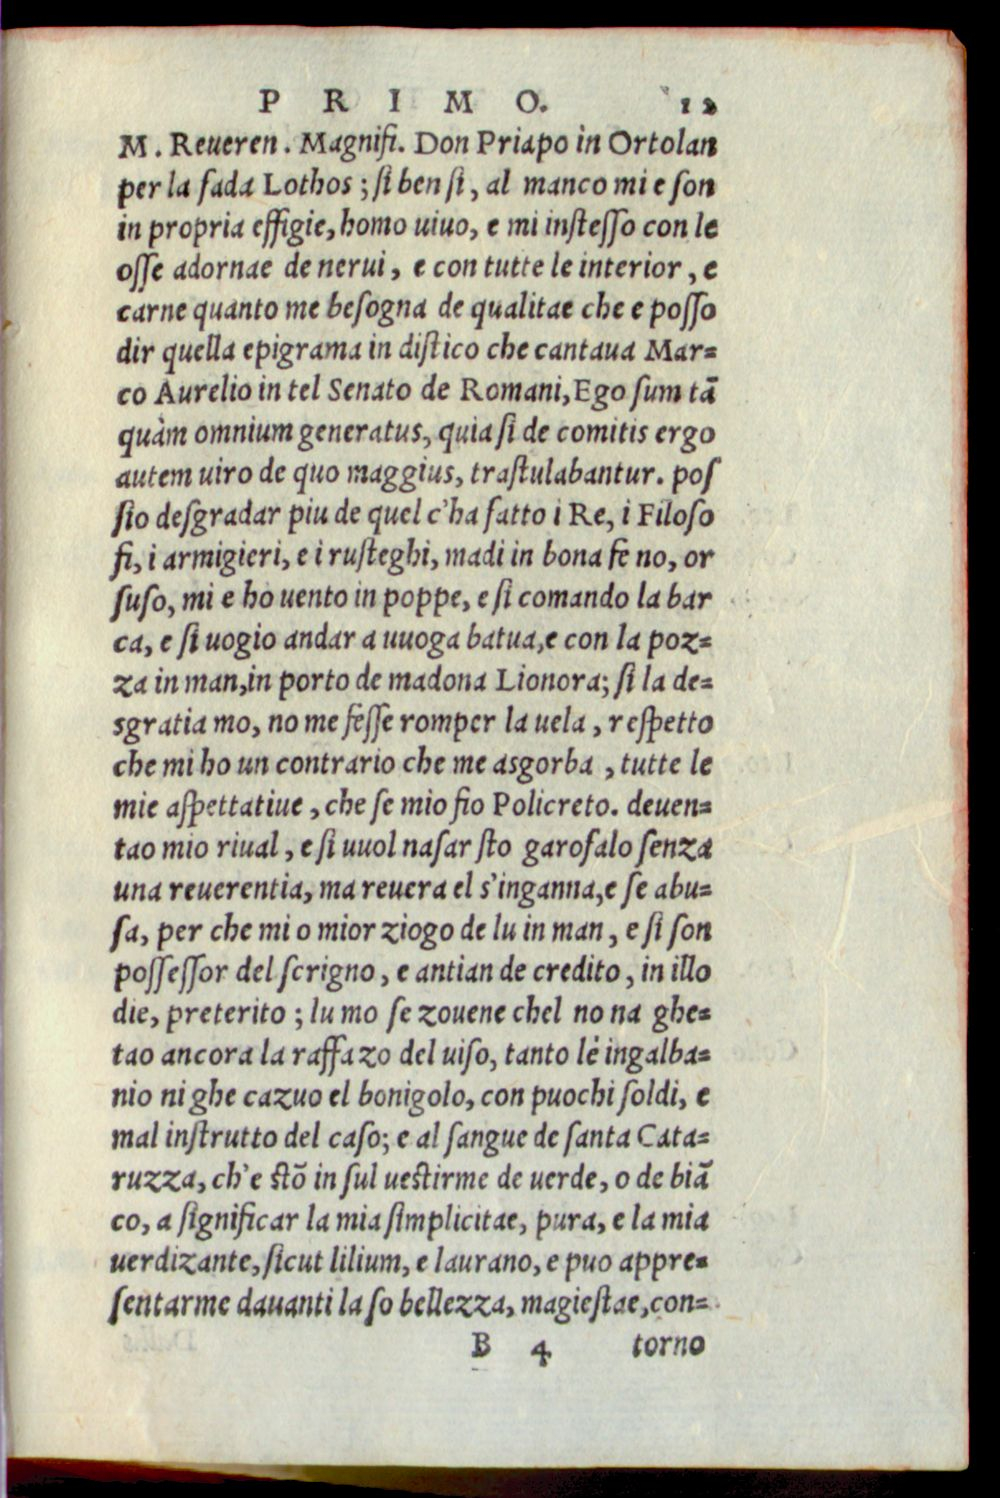 P R I M O. 12
M. Reueren. Magnifi. Don Priapo in Ortolan
per la fada Lothos; ſi ben ſi, al manco mi e ſon
in propria effigie, homo uiuo, e mi inſteſſo con le
oſſe adornae de nerui, e con tutte le interior, e
carne quanto me beſogna de qualitae che e poſſo
dir quella epigrama in diſtico che cantaua Mar=
co Aurelio in tel Senato de Romani, Ego ſum tā
quàm omnium generatus, quia ſi de comitis ergo
autem uiro de quo maggius, traſtulabantur. poſ
ſio deſgradar piu de quel c'ha fatto i Re, i Filoſo
fi, i armigieri, e i ruſteghi, madi in bona fe no, or
ſuſo, mi e ho uento in poppe, e ſi comando la bar
ca, e ſi uogio andar a uuoga batua, e con la poz=
za in man, in porto de madona Lionora; ſi la de=
sgratia mo, no me feſſe romper la uela, reſpetto
che mi ho un contrario che me asgorba, tutte le
mie aſpettatiue, che ſe mio fio Policreto. deuen=
tao mio riual, e ſi uuol naſar ſto garofalo ſenza
una reuerentia, ma reuera el s'inganna, e ſe abu=
ſa, per che mi o mior ziogo de lu in man, e ſi ſon
poſſeſſor del ſcrigno, e antian de credito, in illo
die, preterito; lu mo ſe zouene chel no na ghe=
tao ancora la raffazo del uiſo, tanto lé ingalba=
nio ni ghe cazuo el bonigolo, con puochi ſoldi, e
mal inſtrutto del caſo; e al ſangue de ſanta Cata=
ruzza, ch'e ſtō in ſul ueſtirme de uerde, o de biā
co, a ſignificar la mia ſimplicitae, pura, e la mia
uerdizante, ſicut lilium, e laurano, e puo appre=
ſentarme dauanti la ſo bellezza, magieſtae, con=
B 4 torno